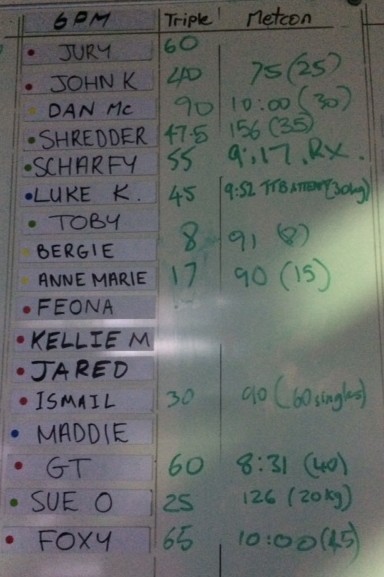 6PM Triple Metcon
JURY 60
JOHN K 40 75 (25)
DAN Mc 90 10:00 (30)
SHREDDER 47.5 156 (35)
SCHARFY 55 9:17. RX.
LUKE K. 45 9:52 (30kg)
TOBY
BERGIE 8 91 (8)
ANNE MARIE 17 90 (15)
FEONA
KELLIE M
JARED
ISMAIL 30 90 (60 singles)
MADDIE
GT 60 8:31 (40)
SUE O 25 126 (20kg)
FOXY 65 10:00 (45)